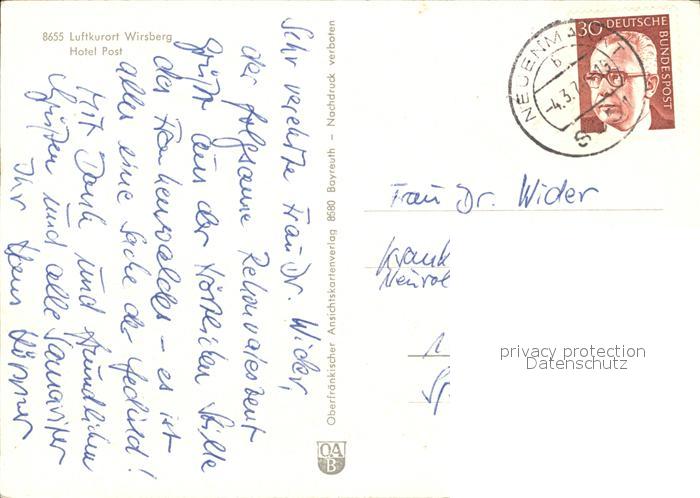 8655 Luftkurort Wirsberg
Hotel Post
Sehr verehrte Frau Dr. Wider,
der folgsame Rekonvaleszent
grüßt aus der köstlichen Stille
des Frankenwaldes – es ist
alles eine Sache der Geduld!
Mit Dank und freundlichen
Grüßen und alle Samariter
Ihr Hans
Oberfränkischer Ansichtskartenverlag 8580 Bayreuth – Nachdruck verboten
OA
B
30 DEUTSCHE
BUNDESPOST
NEUENMARKT
b
-4.3.7
Frau Dr. Wider
Krank
Neurol
1
Sp
privacy protection
Datenschutz